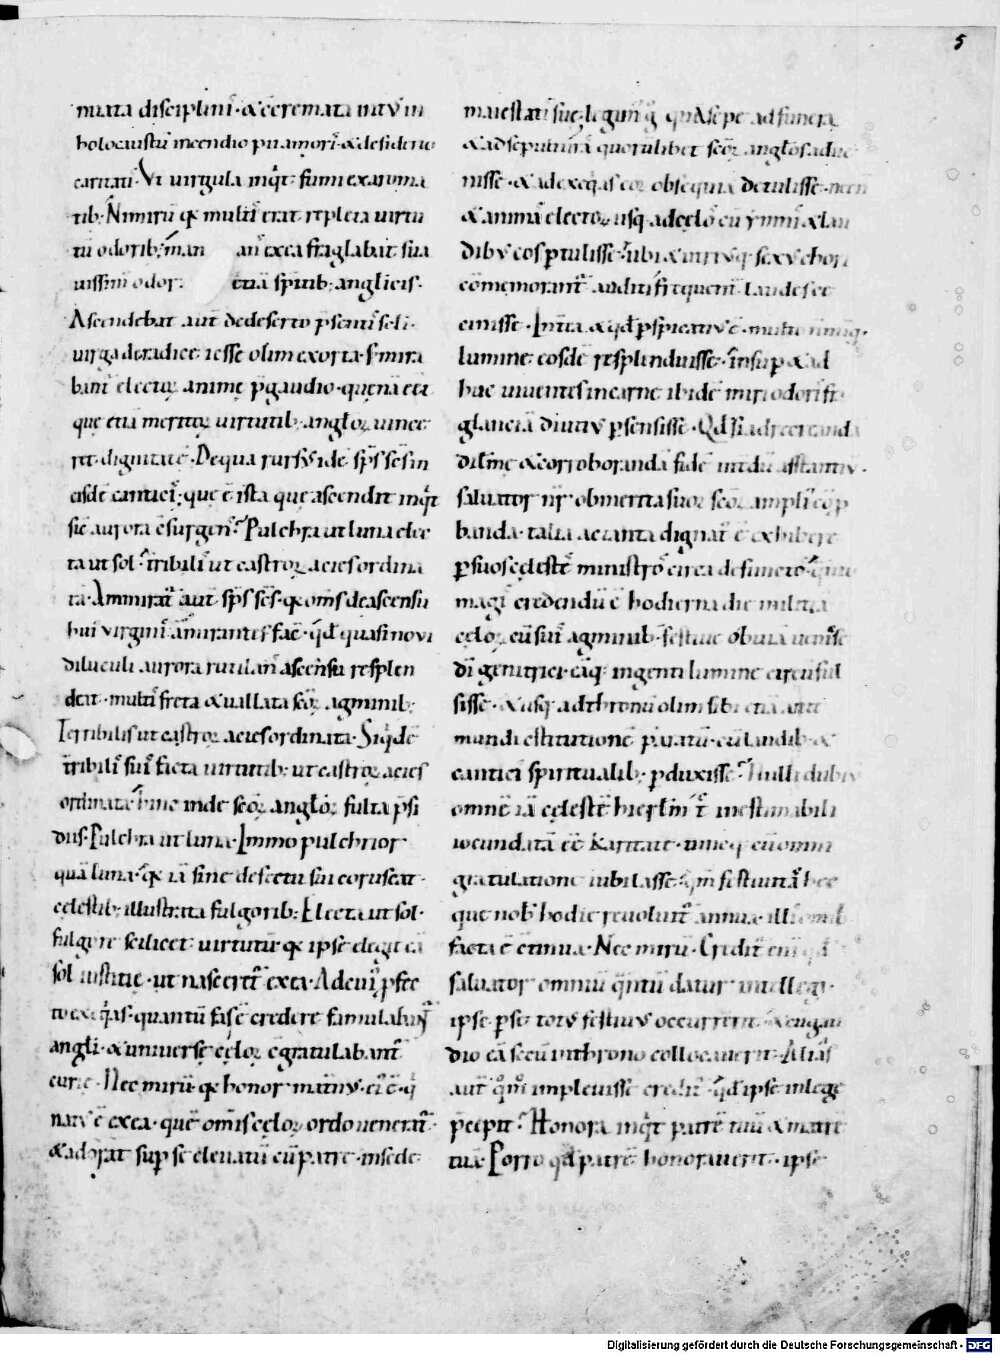 5
mata disciplinis· & cremata intus in
holocaustū incendio pii amoris· & desiderio
caritatis· Ut virgula inq̄t· fumi ex aroma
tib; Nimirū q̄ multis erat repleta virtu
tū odorib; man ans ex ea fraglabat sua
vissimus odor· etiā sp̄itib; anglicis·
Ascendebat aut̄ de deserto p̄sentis scl̄i·
virga de radice iesse olim exorta· s; mira
bant̄ electoꝝ animę p̄ gaudio· quęnā eēt
que etiā meritoꝝ virtutib; anglōꝝ vince
ret dignitatē· De qua rursus idē sp̄s sc̄s in
eisdē canticis; quę ē ista que ascendit inq̄t
sic aurora c̄surgens? Pulchra ut luna elec
ta ut sol· tr̄ribilis ut castroꝝ acies ordina
ta· Ammirat̄ aut̄ sp̄s sc̄s· q̄ om̄s de ascensu
hui virginis āmirantes fac̄· q̄d quasi novi
diluculi aurora rutilans ascensu resplen
deat· multis freta & vallata sc̄oꝝ agminib;
Terribilis ut castroꝝ acies ordinata· Siq̄dē
tr̄ribilis suis facta virtutib; ut castroꝝ acies
ordinata hinc inde sc̄oꝝ anglōꝝ fulta p̄si
diis· Pulchra ut luna· Immo pulchrior
quā luna· q̄ iā sine defectu sui coruscat·
cęlestib; illustrata fulgorib; Electa ut sol·
fulgore scilicet virtutū q̄ ipse elegit eā
sol iustitię· ut nascer̄t ex ea· Ad cuius p̄fec
to exeq̄as· quantū fas ē credere famulabant̄
angli· & universę cęloꝝ c̄gratulabant̄
curię· Nec mirū q̄ honor matn̄us· ei ē q̄
natus ē ex ea· quē om̄is cęloꝝ ordo venerat̄·
& adorat sup̄ se elevatū cū patre· in sede
maiestatis suę· legim̄ q̄ quia sepe ad funera
& ad sepulturā quorūlibet sc̄oꝝ anglōs adve
nisse· & ad exeq̄as eoꝝ obsequia detulisse· necn̄
& animas electoꝝ usq̄ ad cęlos cū ymnis & lau
dibus eos p̄tulisse· ubi & utriusq; sexus chori
cōmemorant̄ auditi frequent̄ laudes ce
cinisse· Int̄ea & qd̄ p̄spicatius ē· multo nūq̄
lumine eosdē resplenduisse· insup̄ & ad
huc viventes in carne ibidē miri odoris fra
glanciā diutius p̄sensisse· Qd̄ si ad recreandā
& corroborandā fidē int̄dū
salvator nr̄· ob merita suoꝝ sc̄oꝝ
banda· talia ac tanta dignat̄ ē exhibere
p̄ suos cęlestes ministros circa defunctos·
magis credendū ē hodierna die militiā
cęloꝝ cū suis agminib; festive obviā venisse
dī genitrici· eāq̄ ingenti lumine circūful
sisse· & usq̄ ad thronū olim sibi etiā ante
mundi cstitutionē paratū· cū laudib; &
canticis spiritualib; p̄duxisse· Nulli dubiū
omnē iā cęlestē hierlm̄ inestimabili
iocundatā eē karitate· tuncq̄ cū omni
gratulatione iubilasse· q̄m festivitas hec
que nob̄ hodie revolvit̄ annua· illis omib̄
facta ē c̄tinua· Nec mirū· Credit̄ eni q̄d
salvator omniū q̄ntū datur intellegi·
ipse p̄ se totus festivus occurrerit· & cū gau
dio eā secū in throno collocaverit· Alias
aut̄ q̄m̄ implevisse credit̄· q̄d ipse in lege
p̄cepit? Honora inq̄t patrē tuū & matrē
tuā· Porro qd̄ patrē honoraverit· ipse
Digitalisierung gefördert durch die Deutsche Forschungsgemeinschaft - DFG